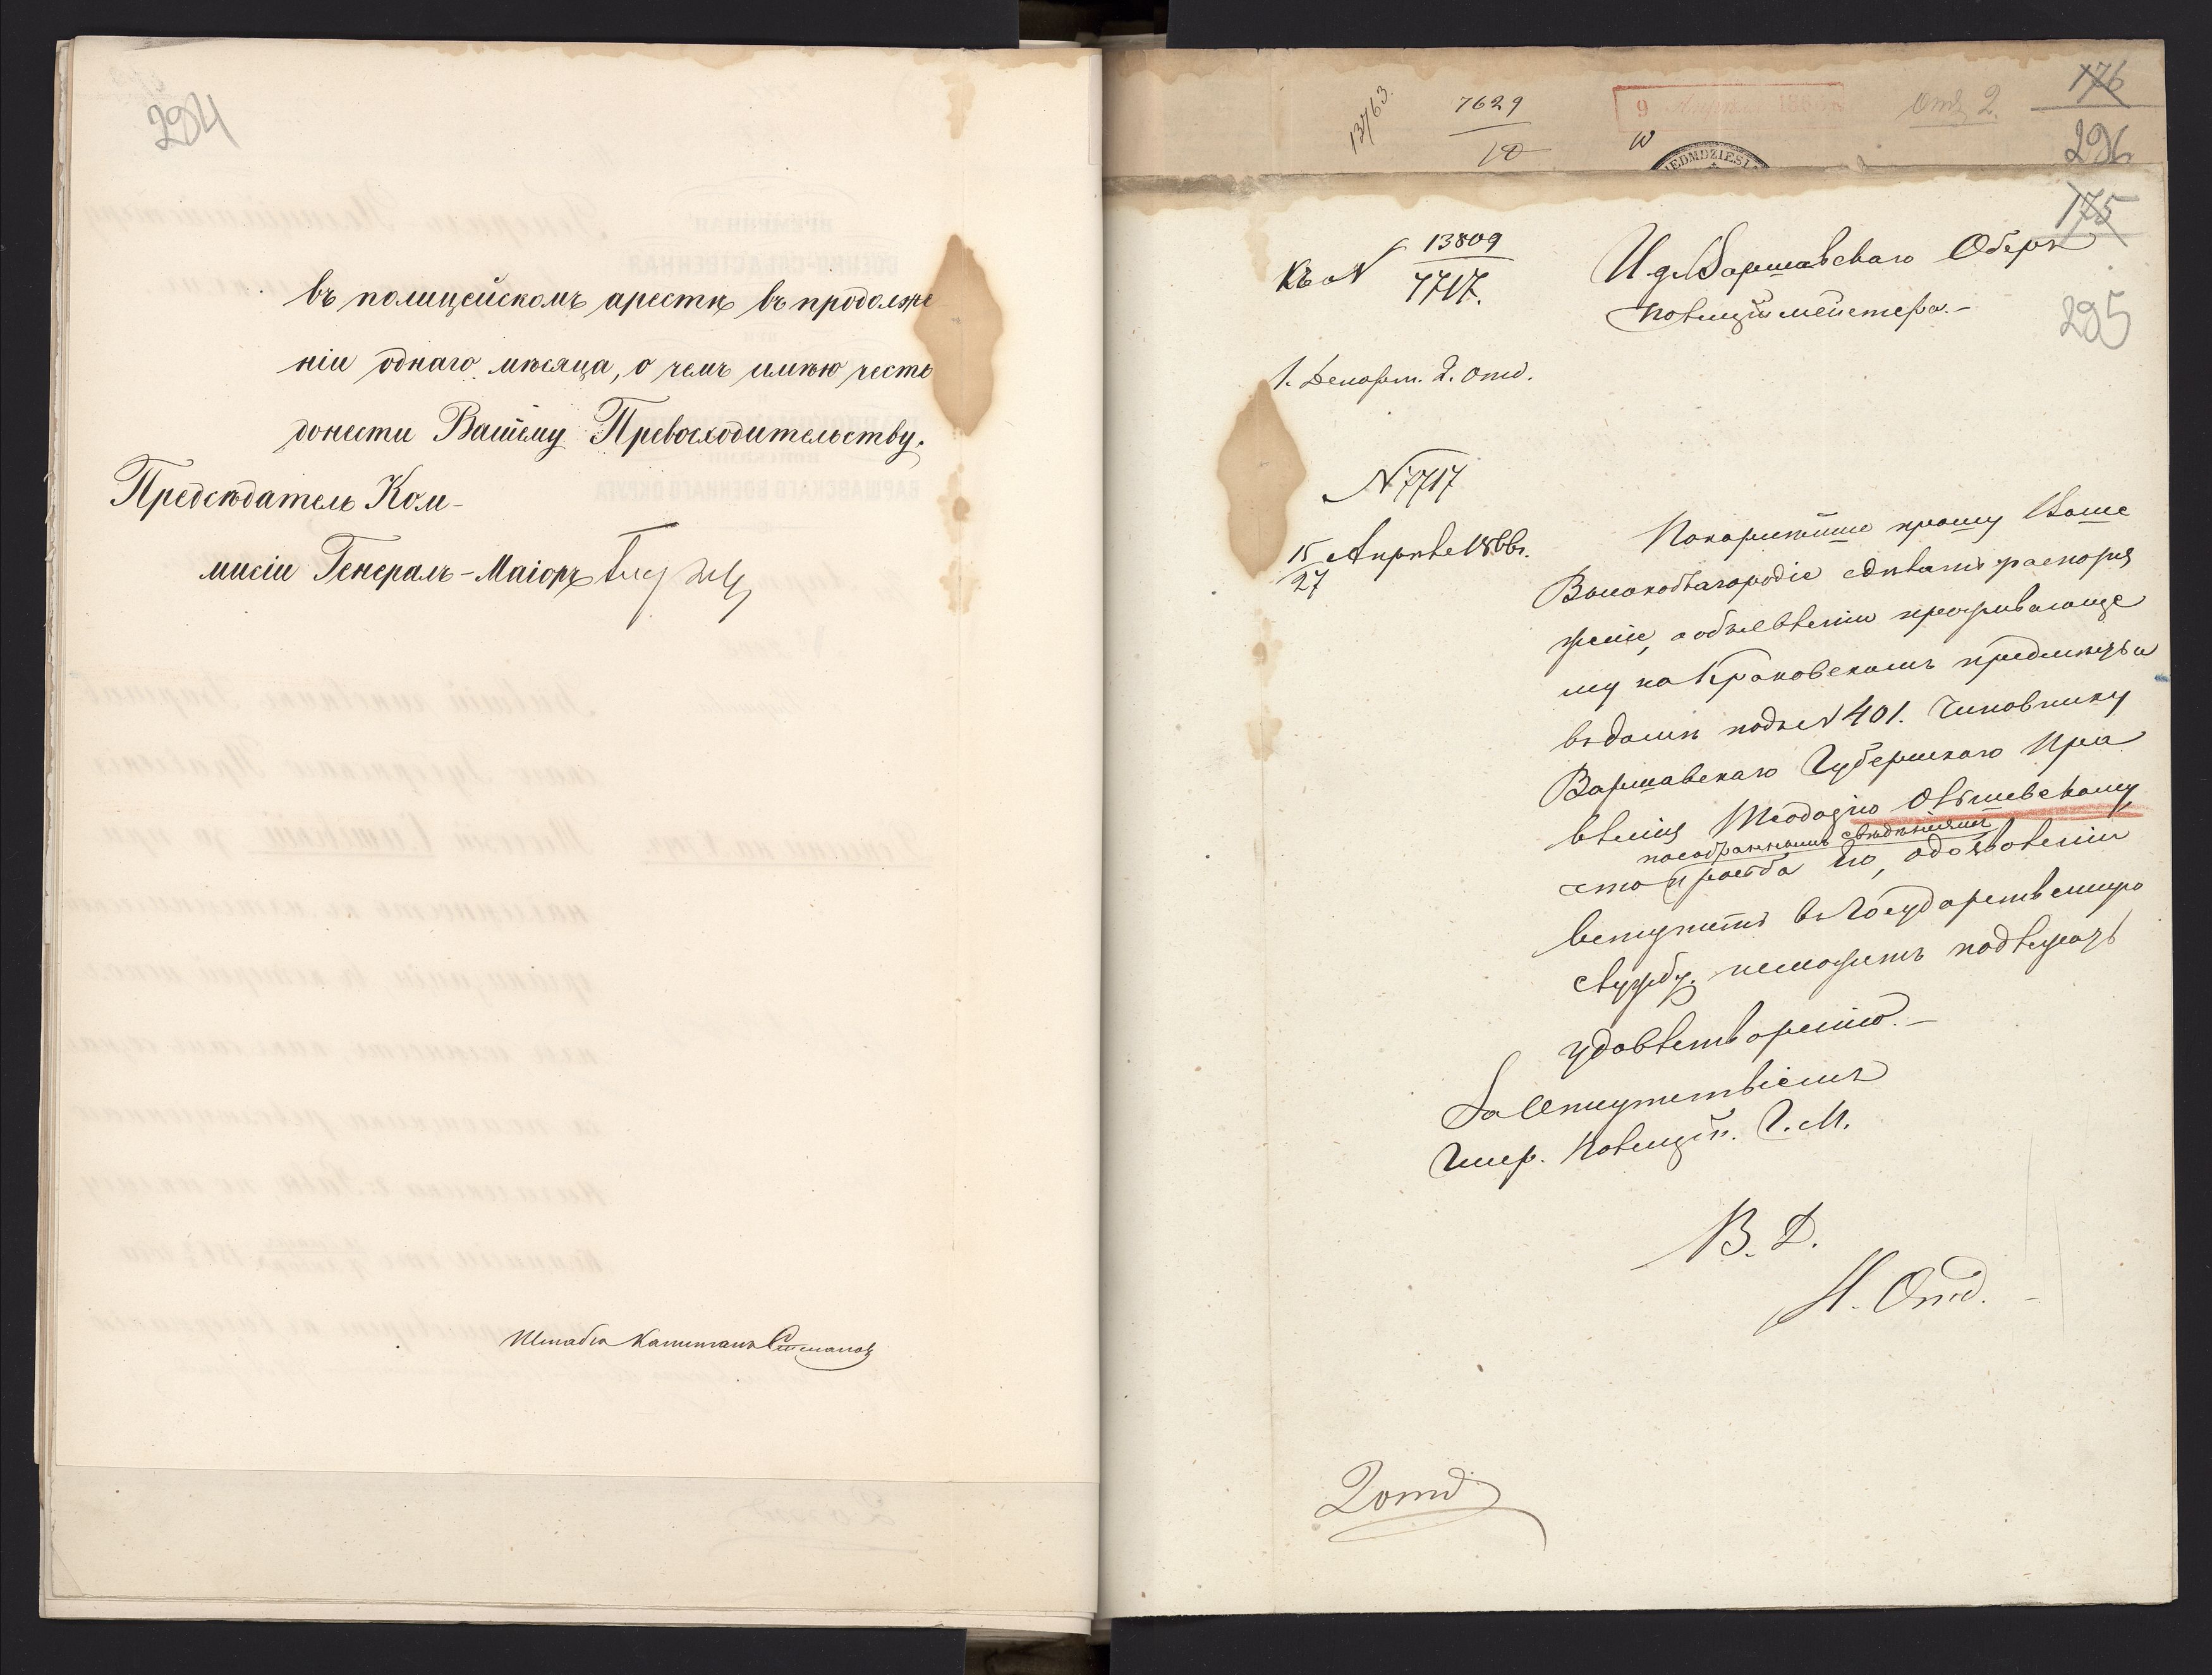 294
въ полицейскомъ арестѣ въ продолже
ніи однаго мѣсяца, о чемъ имѣю честь
донести Вашему Превосходительству.
Предсѣдатель Ком-
мисіи Генералъ-Маіоръ
Штабсъ Капитанъ
13763.
7629
10
9 Апрѣля 186
Отд 2.
176
296
IEDMDZIESI
175
295
Къ №
13809
7717.
И. д. Варшавскаго Оберъ
Полиціймейстера.-
1. Департ. 2. Отд.
№ 7717
15/27 Апрѣля 1866 г.
Покорнѣйше прошу Ваше
Высокоблагородіе сдѣлать распоря
женіе, о объявленіи проживающе
му на Краковскомъ предмѣстьи
въ домѣ подъ № 401. Чиновнику
Варшавскаго Губернскаго Пра
вленія Теодозію
по собраннымъ свѣдѣніямъ
что просьба его, о дозволеніи
вступить въ Государственную
службу, неможетъ подлежать
удовлетворенію.-
За Отсутствіемъ
Гнер. Полицій. Г. М.
В. Д.
Н. Отд.
2 отд